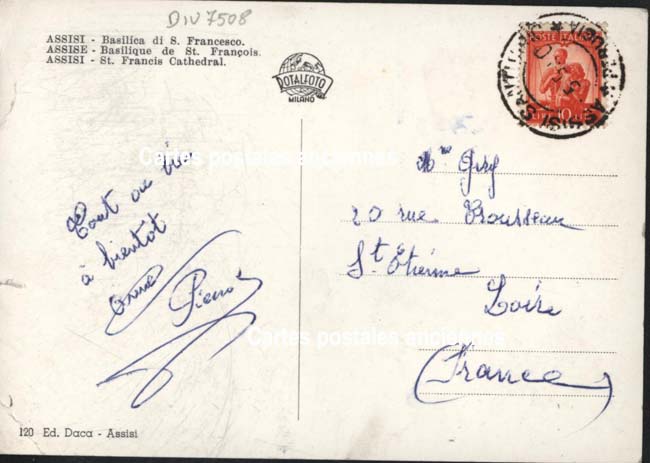 DIV 7508
ASSISI - Basilica di S. Francesco.
ASSISE - Basilique de St. François.
ASSISI - St. Francis Cathedral.
DOTALFOTO
MILANO
POSTE ITALIANE
10
ASSISI
PERUGIA
Cartes postales anciennes
Tout va
à bientôt
Pierre
Mme
20 rue Trousseau
St. Etienne
Loire
(France)
Cartes postales anciennes
120 Ed. Daca - Assisi